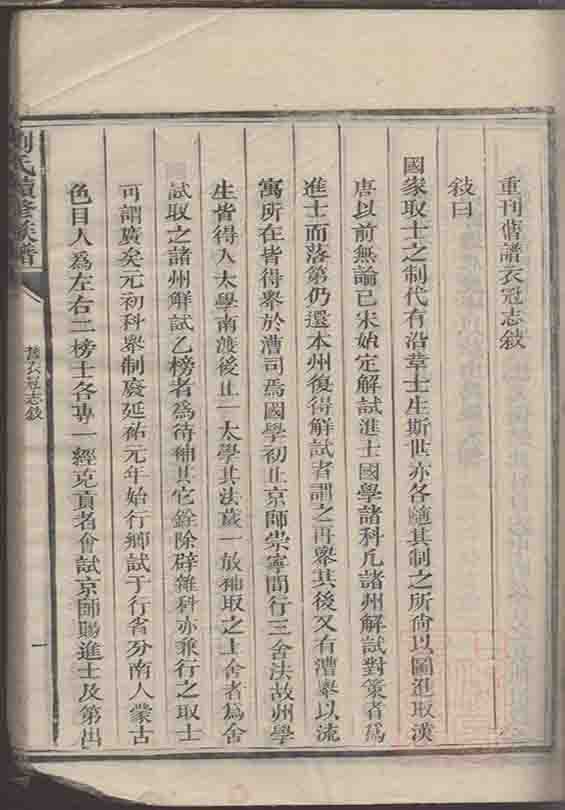 重刊舊譜衣冠志敍
敍曰
國家取士之制代有沿革士生斯世亦各隨其制之所尙以圖進取漢
唐以前無論已宋始定解試進士國學諸科凡諸州解試對策者爲
進士而落第仍還本州復得解試者謂之再舉其後又有漕舉以流
寓所在皆得舉於漕司焉國學初止京師崇寧間行三舍法故州學
生皆得入太學南渡後止一太學其法歲一放補取之上舍者爲舍
試取之諸州解試乙榜者爲待補其它銓除辟雜科亦兼行之取士
可謂廣矣元初科舉制廢延祐元年始行鄉試于行省分南人蒙古
色目人爲左右二榜士各專一經充貢者會試京師賜進士及第出
劉氏續修族譜
舊衣冠志敍
一